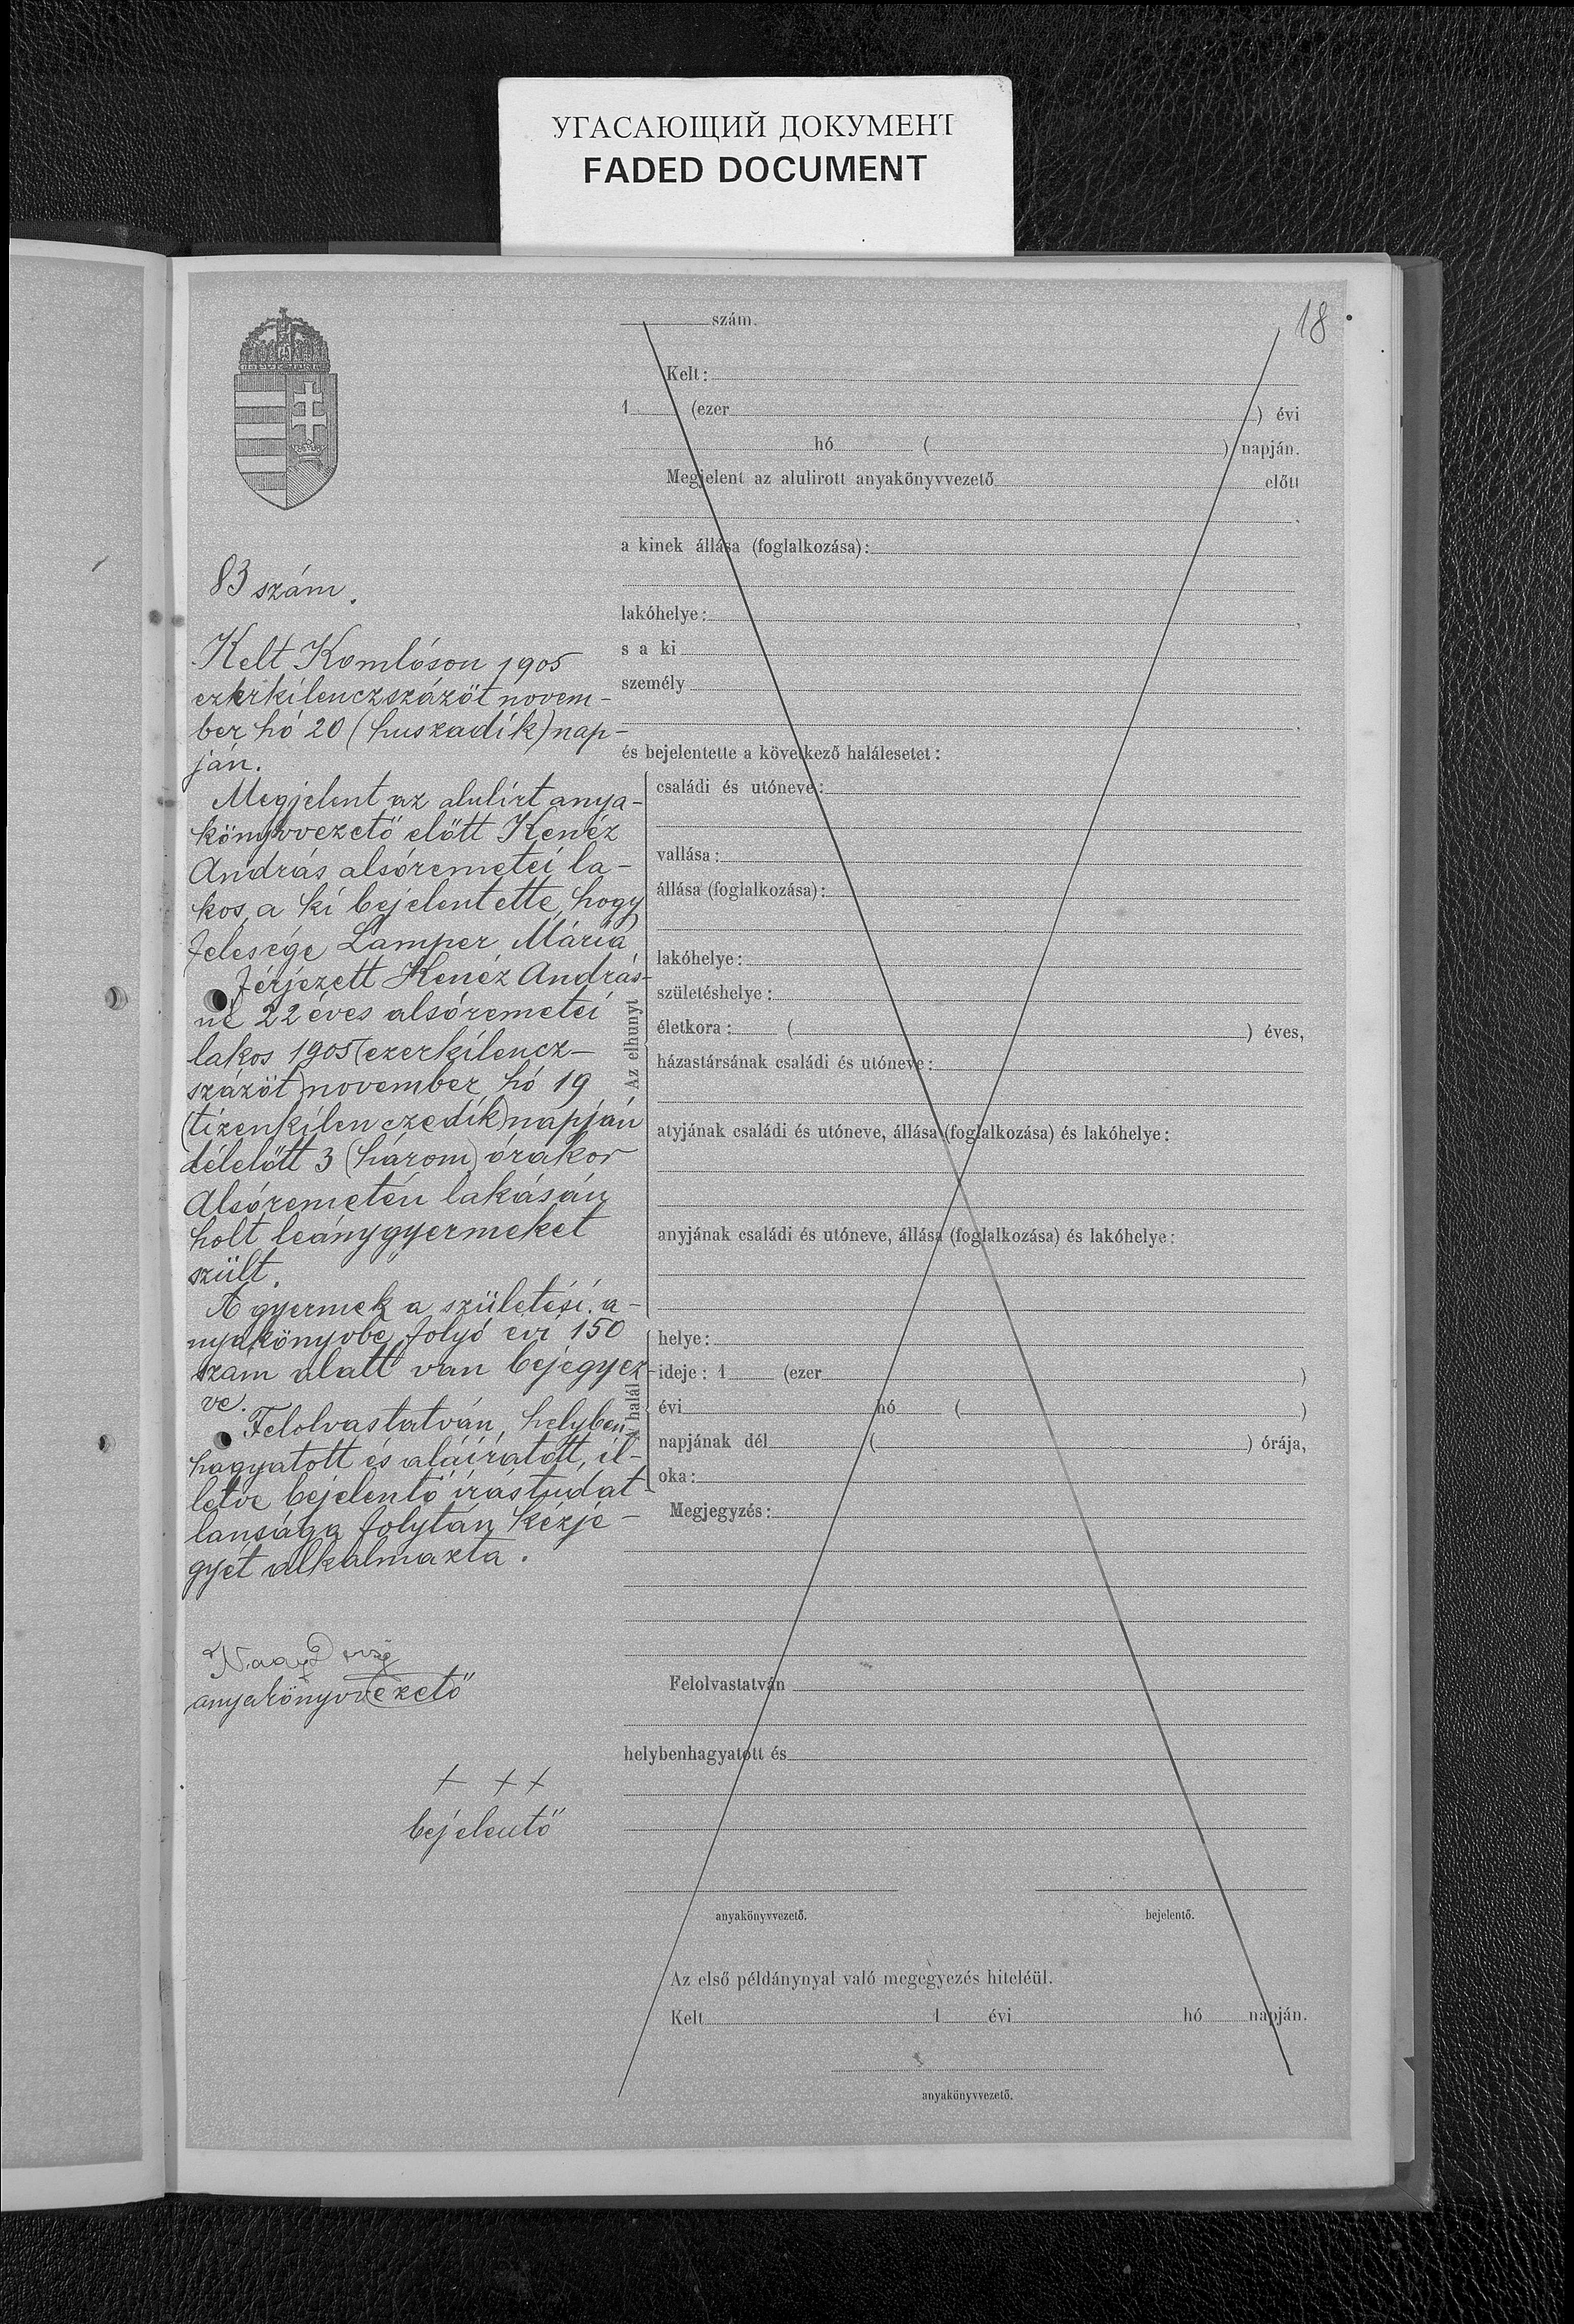 УГАСАЮЩИЙ ДОКУМЕНТ
FADED DOCUMENT
18
83 szám.
Kelt Komlóson 1905
ezerkilenczszázöt novem-
ber hó 20 (huszadik) nap-
ján.
Megjelent az alulirt anya-
könyvvezető előtt Kenéz
András alsóremetei la-
kos, a ki bejelentette, hogy
felesége Lamper Mária
férjezett Kenéz András-
né 22 éves alsóremetei
lakos 1905 (ezerkilencz-
százöt) november hó 19
(tizenkilenczedik) napján
délelőtt 3 (három) órakor
Alsóremetén lakásán
holt leánygyermeket
szült.
A gyermek a születési a-
nyakönyvbe folyó évi 150
szam alatt van bejegyez-
ve.
Felolvastatván, helyben-
hagyatott és aláíratott, il-
letve bejelentő írástudat-
lansága folytán kézje-
gyét alkalmazta.
anyakönyvvezető
+ + +
bejelentő
szám.
Kelt:
1 (ezer ) évi
hó ( ) napján.
Megjelent az alulirott anyakönyvvezető előtt
a kinek állása (foglalkozása):
lakóhelye: ,
s a ki
személy
és bejelentette a következő halálesetet:
Az elhunyt
családi és utóneve:
vallása:
állása (foglalkozása):
lakóhelye:
születéshelye:
életkora: ( ) éves,
házastársának családi és utóneve:
atyjának családi és utóneve, állása (foglalkozása) és lakóhelye:
anyjának családi és utóneve, állása (foglalkozása) és lakóhelye:
A halál
helye:
ideje: 1 (ezer )
évi hó ( )
napjának dél ( ) órája,
oka:
Megjegyzés:
Felolvastatván
helybenhagyatott és
anyakönyvvezető. bejelentő.
Az első példánynyal való megegyezés hiteléül.
Kelt 1 évi hó napján.
anyakönyvvezető.